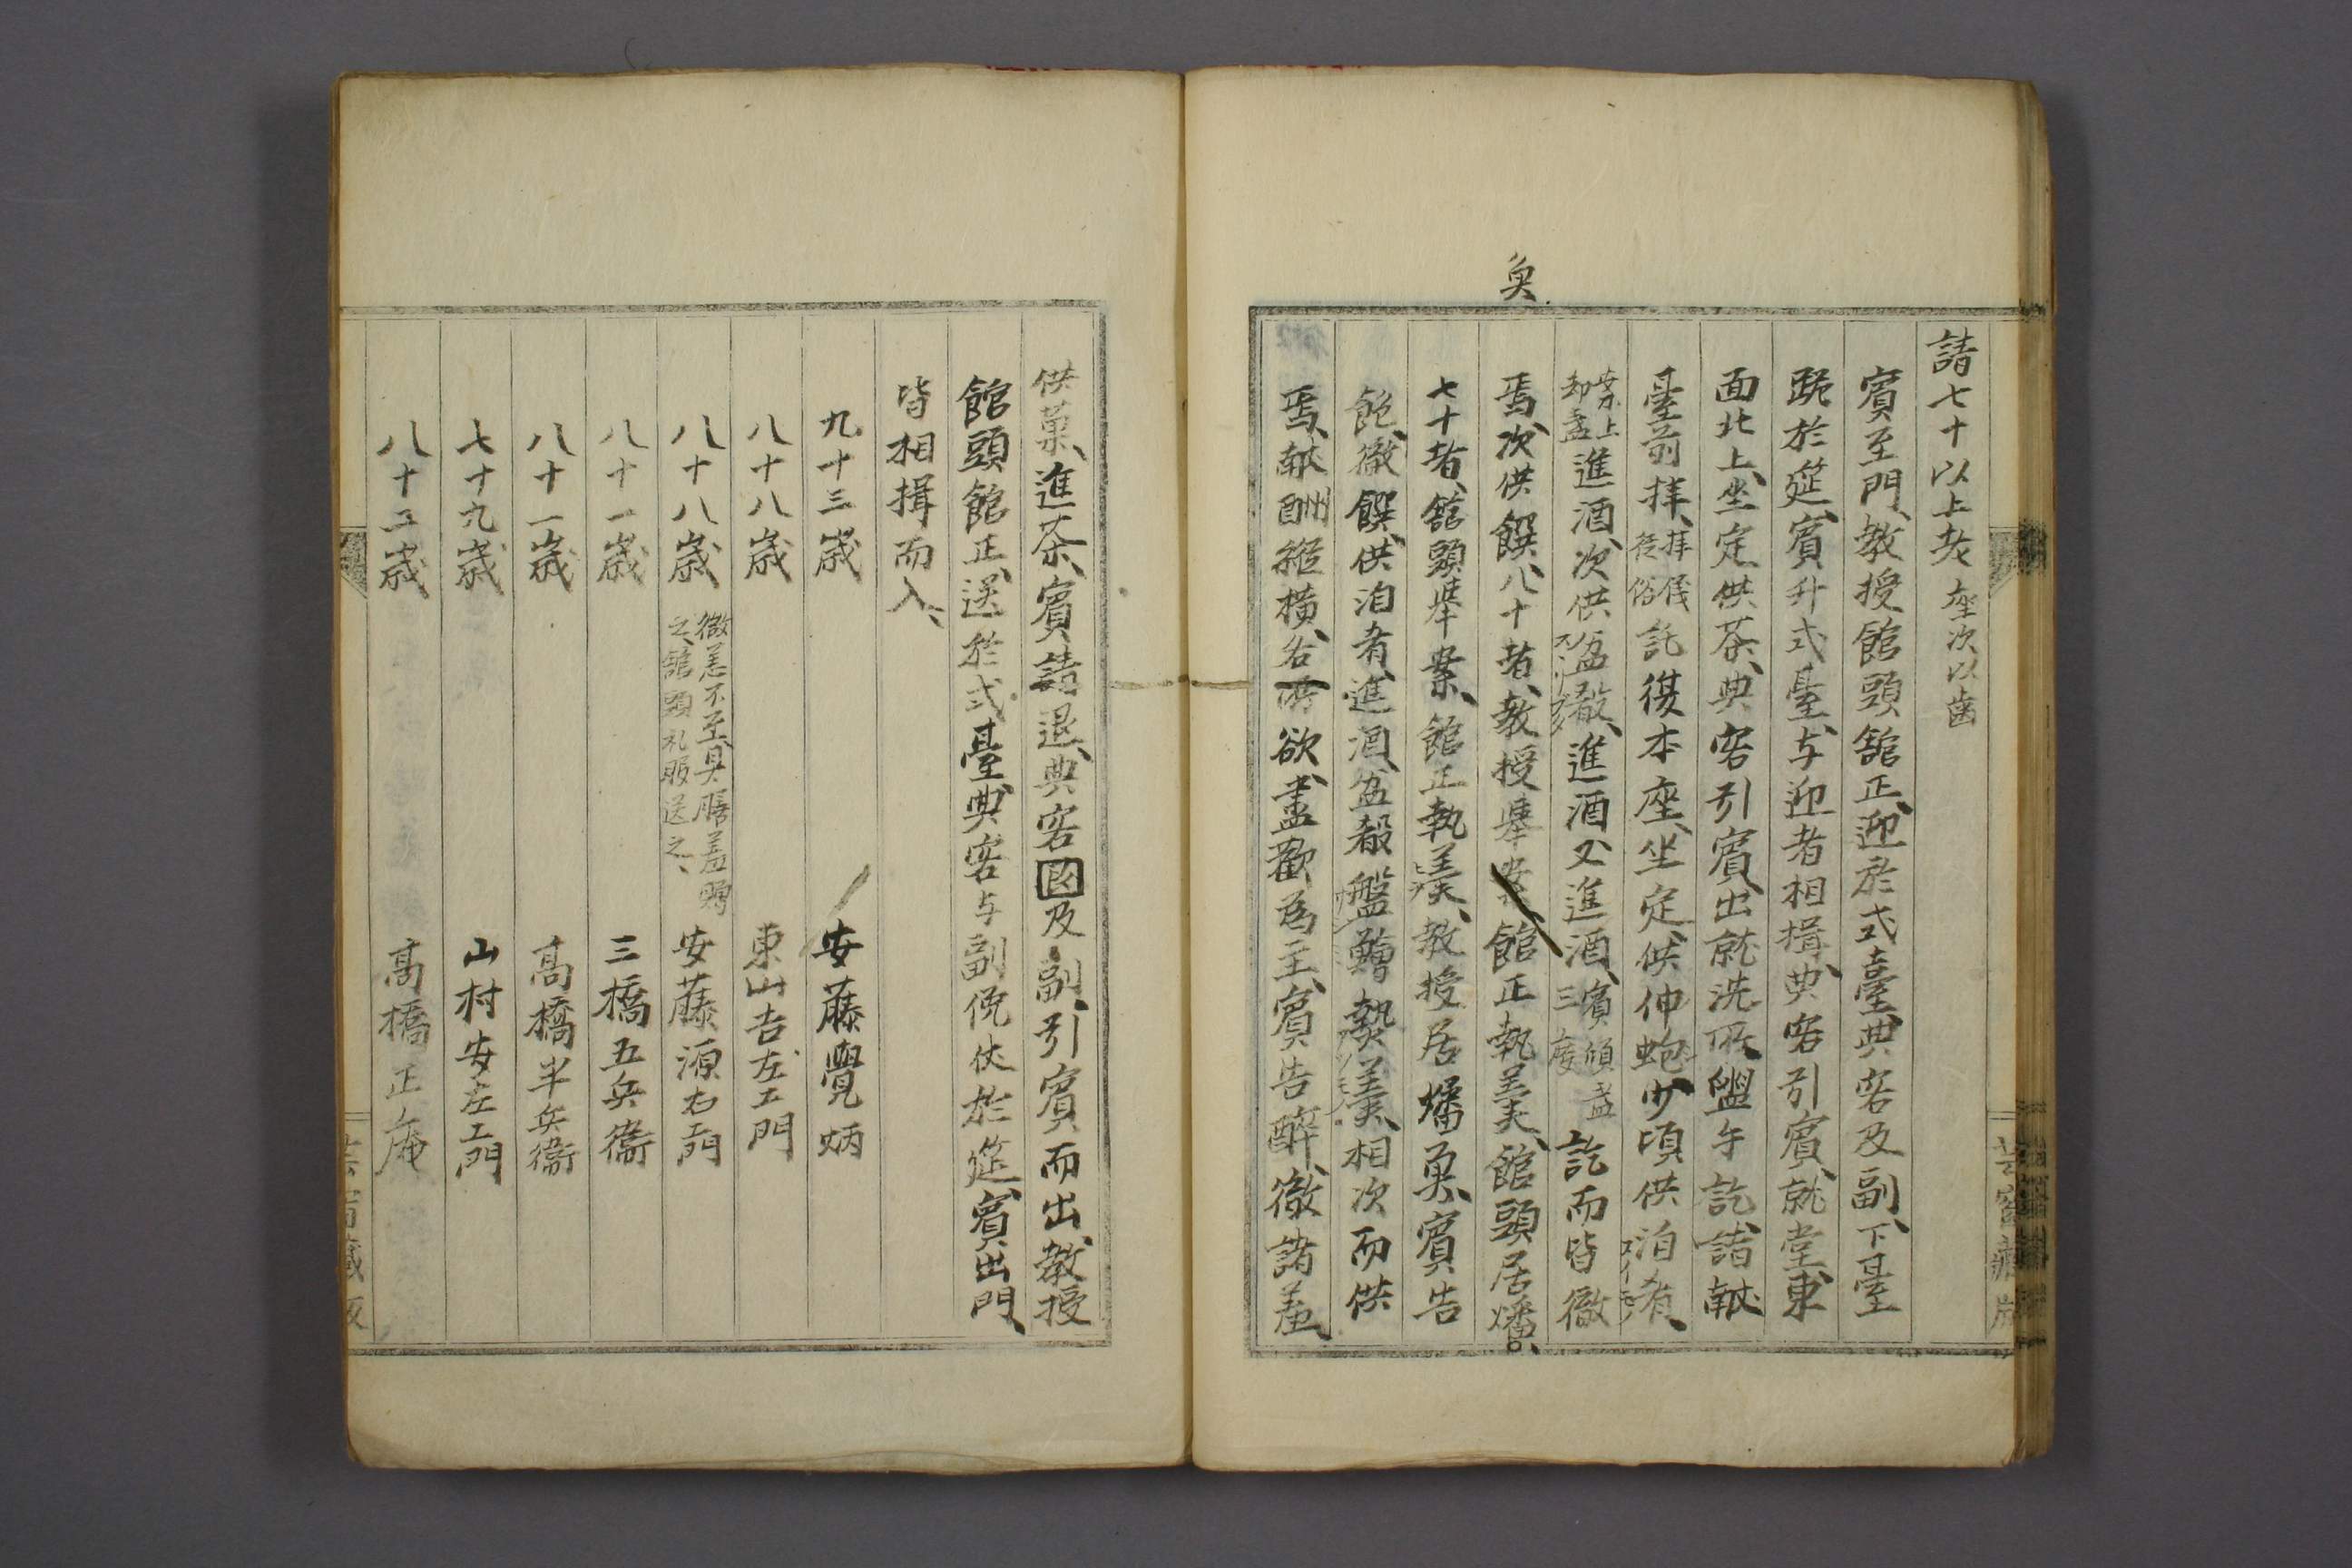 奥
請七十以上老 座次以歯
賓至門、教授館頭舘正、迎於式臺、典客及副、下臺
跪於筵、賓升式臺、与迎者相揖、典客引賓、就堂東
面北上、坐定、供茶、典客引賓、出就洗所、盥手訖、詣献
臺前拝、拝儀従俗 訖復本座、坐定、供伸蚫、少頃供泊肴、
案上却盞 進酒、次供盆 進酒又進酒、賓傾盞三度 訖而皆徹
焉、次供饌、八十者、教授挙案、館正執羹、館頭居燔
七十者、舘頭挙案、館正執羹、教授居燔奥、賓告
飽、徹饌、供泊肴、進酒、盆 盤鱛 羹、相次而供
焉、献酬縦横、各所欲、盡歡為主、賓告酔、徹諸羞、
供菓、進茶、賓請退、典客 及副、引賓而出、教授
館頭館正、送於式臺、典客与副俛伏於筵、賓出門、
皆相揖而入、
九十三歳 安藤覺炳
八十八歳 東山吉左エ門
八十八歳 微恙不至、具膳羞 之、舘頭礼服送之、 安藤源右エ門
八十一歳 三橋五兵衞
八十一歳 高橋半兵衞
七十九歳 山村安左エ門
八十二歳 高橋正庵